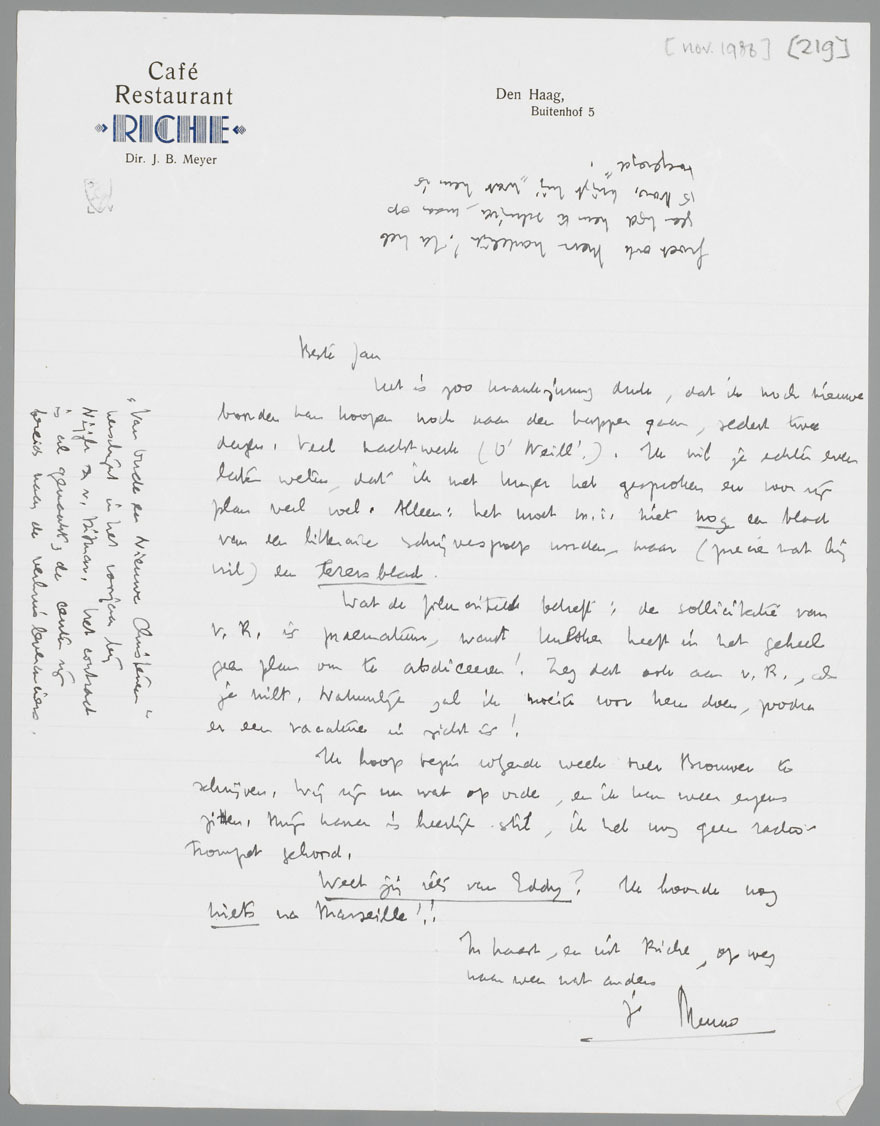 [nov. 1936] [219]
Café
Restaurant
RICHE
Dir. J. B. Meyer
Den Haag,
Buitenhof 5
Beste Jan
Het is zoo krankzinnig druk, dat ik noch nieuwe
boorden kan koopen noch naar den kapper gaan, sedert twee
dagen. Veel nachtwerk (O'Neill!). Ik wil je echter even
laten weten, dat ik met het gesproken en voor zijn
plan veel voel. Alleen: het moet m.i. niet nog een blad
van een litteraire schrijversgroep worden, maar (precies wat hij
wil) een lezersblad.
Wat de betreft: de sollicitatie van
v. K. is praematuur, want heeft in het geheel
geen plan om te abdiceeren! Zeg dat ook aan v. K., als
je wilt. Natuurlijk zal ik moeite voor hem doen, zoodra
er een vacature in zicht is!
Ik hoop begin volgende week over Brouwer te
schrijven. Wij zijn nu wat op orde, en ik kan weer ergens
zitten. Mijn kamer is heerlijk stil, ik heb nog geen radio-
trompet gehoord.
Weet jij iets van Eddy? Ik hoorde nog
niets na Marseille!!
In haast, en uit Riche, op weg
naar weer wat anders
je Menno
"Van oude en nieuwe Christenen"
verschijnt in het voorjaar bij
Nijgh & v. Ditmar. Het contract
is al gemaakt; de centen zijn
bereids naar de leveranciers.
Groet ook hartelijk! Ik heb
geen tijd hem te schrijven, maar op
15 Nov. krijgt hij "wat hem is